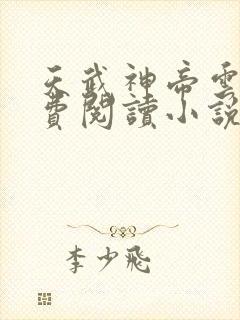 天武神帝雲
費閱讀小說
李少飛